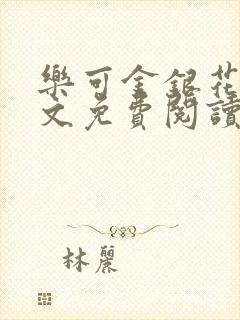 樂可金銀花
文免費閱讀
林麗